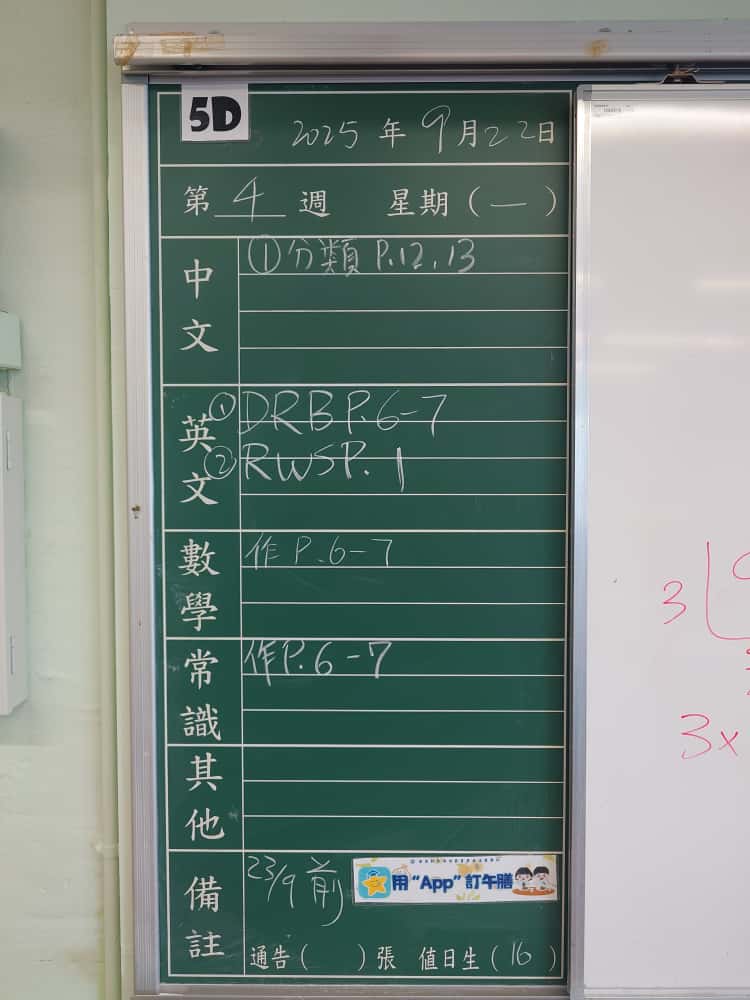 5D
2025 年 9 月 22 日
第 4 週 星期 (一)
中文
① 分類 P.12, 13
英文
① DRB P.6-7
② RWS P. 1
數學
作 P.6-7
常識
作 P.6-7
其他
備註
23/9 前
用 "App" 訂午膳
通告( )張 值日生(16)
3
3x